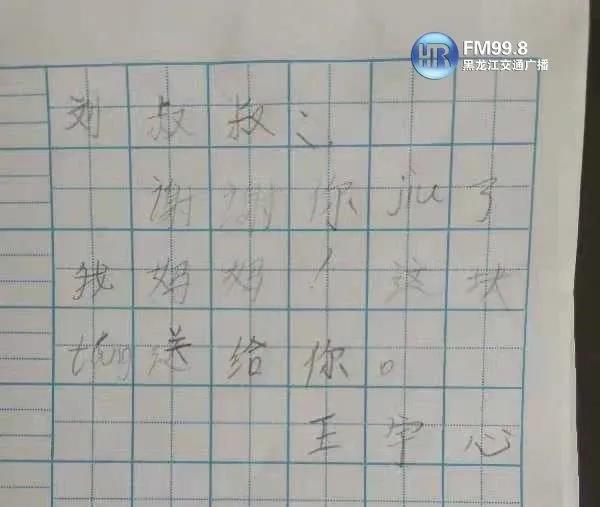 HTR FM99.8
黑龙江交通广播
刘叔叔:
谢谢你jiu了
我妈妈!这块
tang送给你。
王宇心